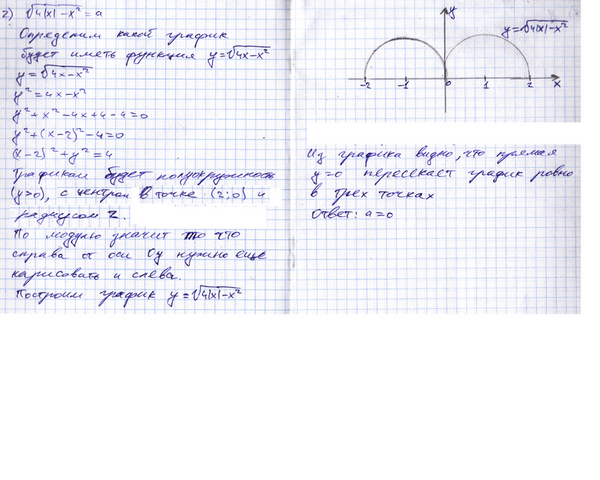 2) √4|x|-x² = a
Определим какой график
будет иметь функция y=√4x-x²
y=√4x-x²
y²=4x-x²
y²+x²-4x+4-4=0
y²+(x-2)²-4=0
(x-2)²+y²=4
Графиком будет полуокружность
(y>0), с центром в точке (2;0) и
радиусом 2.
По модулю значит то что
справа от оси Oy нужно еще
нарисовать и слева.
Построим график y=√4|x|-x²
y
y=√4|x|-x²
-2 -1 0 1 2 x
Из графика видно, что прямая
y=0 пересекает график ровно
в трех точках
Ответ: a=0